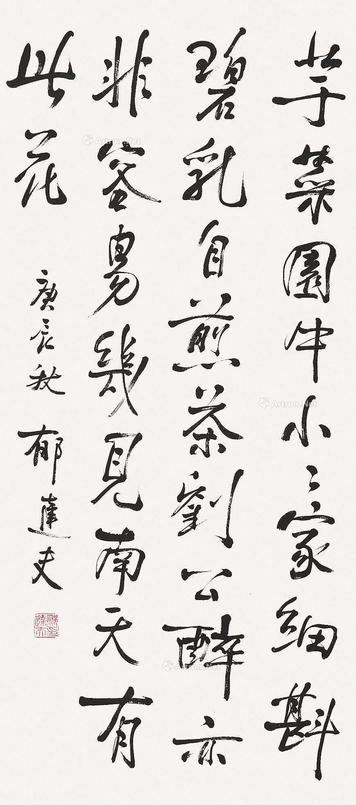 芋菜園中小〻家細斟
碧乳自煎茶劉公醉亦
非容易幾見南天有
此花
庚辰秋 郁達夫